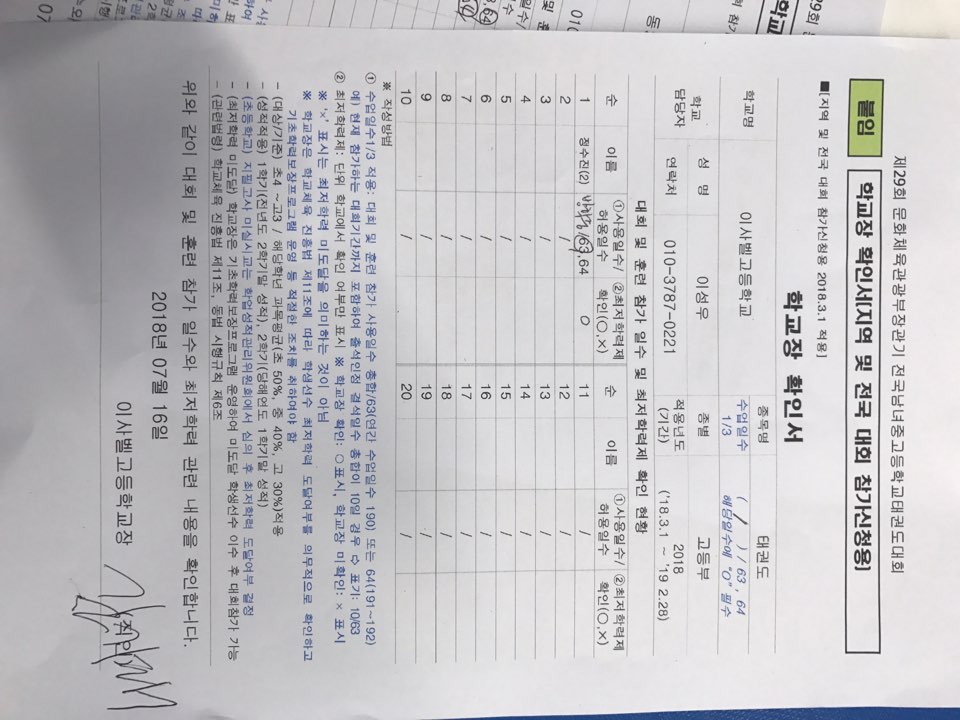 제29회 문화체육관광부장관기 전국남녀중고등학교태권도대회
붙임 학교장 확인서[지역 및 전국 대회 참가신청용]
■[지역 및 전국 대회 참가신청용 2018.3.1 적용]
학교장 확인서
학교명 이사벨고등학교 종목명 태권도
수업일수 1/3 ( / ) / 63, 64
해당일수에 "O" 필수
학교 담당자 성 명 이성우 종별 고등부
연락처 010-3787-0221 적용년도 (기간) 2018
('18.3.1 ~ '19 2.28)
대회 및 훈련 참가 일수 및 최저학력제 확인 현황
순 이름 ①사용일수/허용일수 ②최저학력제 확인(○,×) 순 이름 ①사용일수/허용일수 ②최저학력제 확인(○,×)
1 정수진(2) /63,64 O 11 /
2 / 12 /
3 / 13 /
4 / 14 /
5 / 15 /
6 / 16 /
7 / 17 /
8 / 18 /
9 / 19 /
10 / 20 /
※ 작성방법
① 수업일수1/3 적용: 대회 및 훈련 참가 사용일수 총합/63(연간 수업일수 190) 또는 64(191~192)
예) 현재 참가하는 대회기간까지 포함하여 출석인정 결석일수 총합이 10일 경우 ⇨ 표기: 10/63
② 최저학력제: 단위 학교에서 확인 여부만 표시 ※ 학교장 확인: ○표시, 학교장 미확인: × 표시
※ '×' 표시는 최저학력 미도달을 의미하는 것이 아님
※ 학교장은 학교체육 진흥법 제11조에 따라 학생선수 최저학력 도달여부를 의무적으로 확인하고
기초학력보장프로그램 운영 등 적절한 조치를 취하여야 함
- (대상/기준) 초4 ~고3 / 해당학년 과목평균(초 50%, 중 40%, 고 30%)적용
- (성적적용) 1학기(전년도 2학기말 성적), 2학기(당해연도 1학기말 성적)
- (초등학교) 지필고사 미실시교는 학업성적관리위원회에서 심의 후 최저학력 도달여부 결정
- (최저학력 미도달) 학교장은 기초학력보장프로그램 운영하여 미도달 학생선수 이수 후 대회참가 가능
- (관련법령) 학교체육 진흥법 제11조, 동법 시행규칙 제6조
위와 같이 대회 및 훈련 참가 일수와 최저학력 관련 내용을 확인합니다.
2018년 07월 16일
이사벨고등학교장